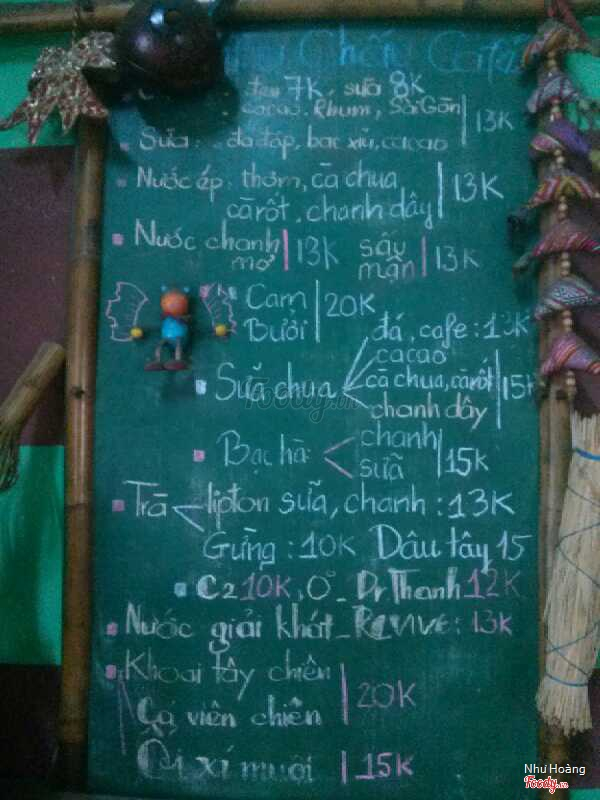 Chốn Café
đen 7K, sữa 8K
cacao, Rhum, SàiGòn 13K
Sữa : đá đập, bạc xỉu, cacao
Nước ép : thơm, cà chua 13K
càrốt, chanh dây
Nước chanh 13K sấu 13K
mơ mận
Cam 20K
Bưởi
đá, cafe : 13K
cacao
Sữa chua cà chua, càrốt 15K
chanh dây
Bạc hà chanh 15K
sữa
Trà lipton sữa, chanh : 13K
Gừng : 10K Dâu tây 15
C2 10K, 0° - Dr Thanh 12K
Nước giải khát - REVIVE : 13K
Khoai tây chiên 20K
Cá viên chiên
xí muội 15K
Foody.vn
Như Hoàng
Foody.vn